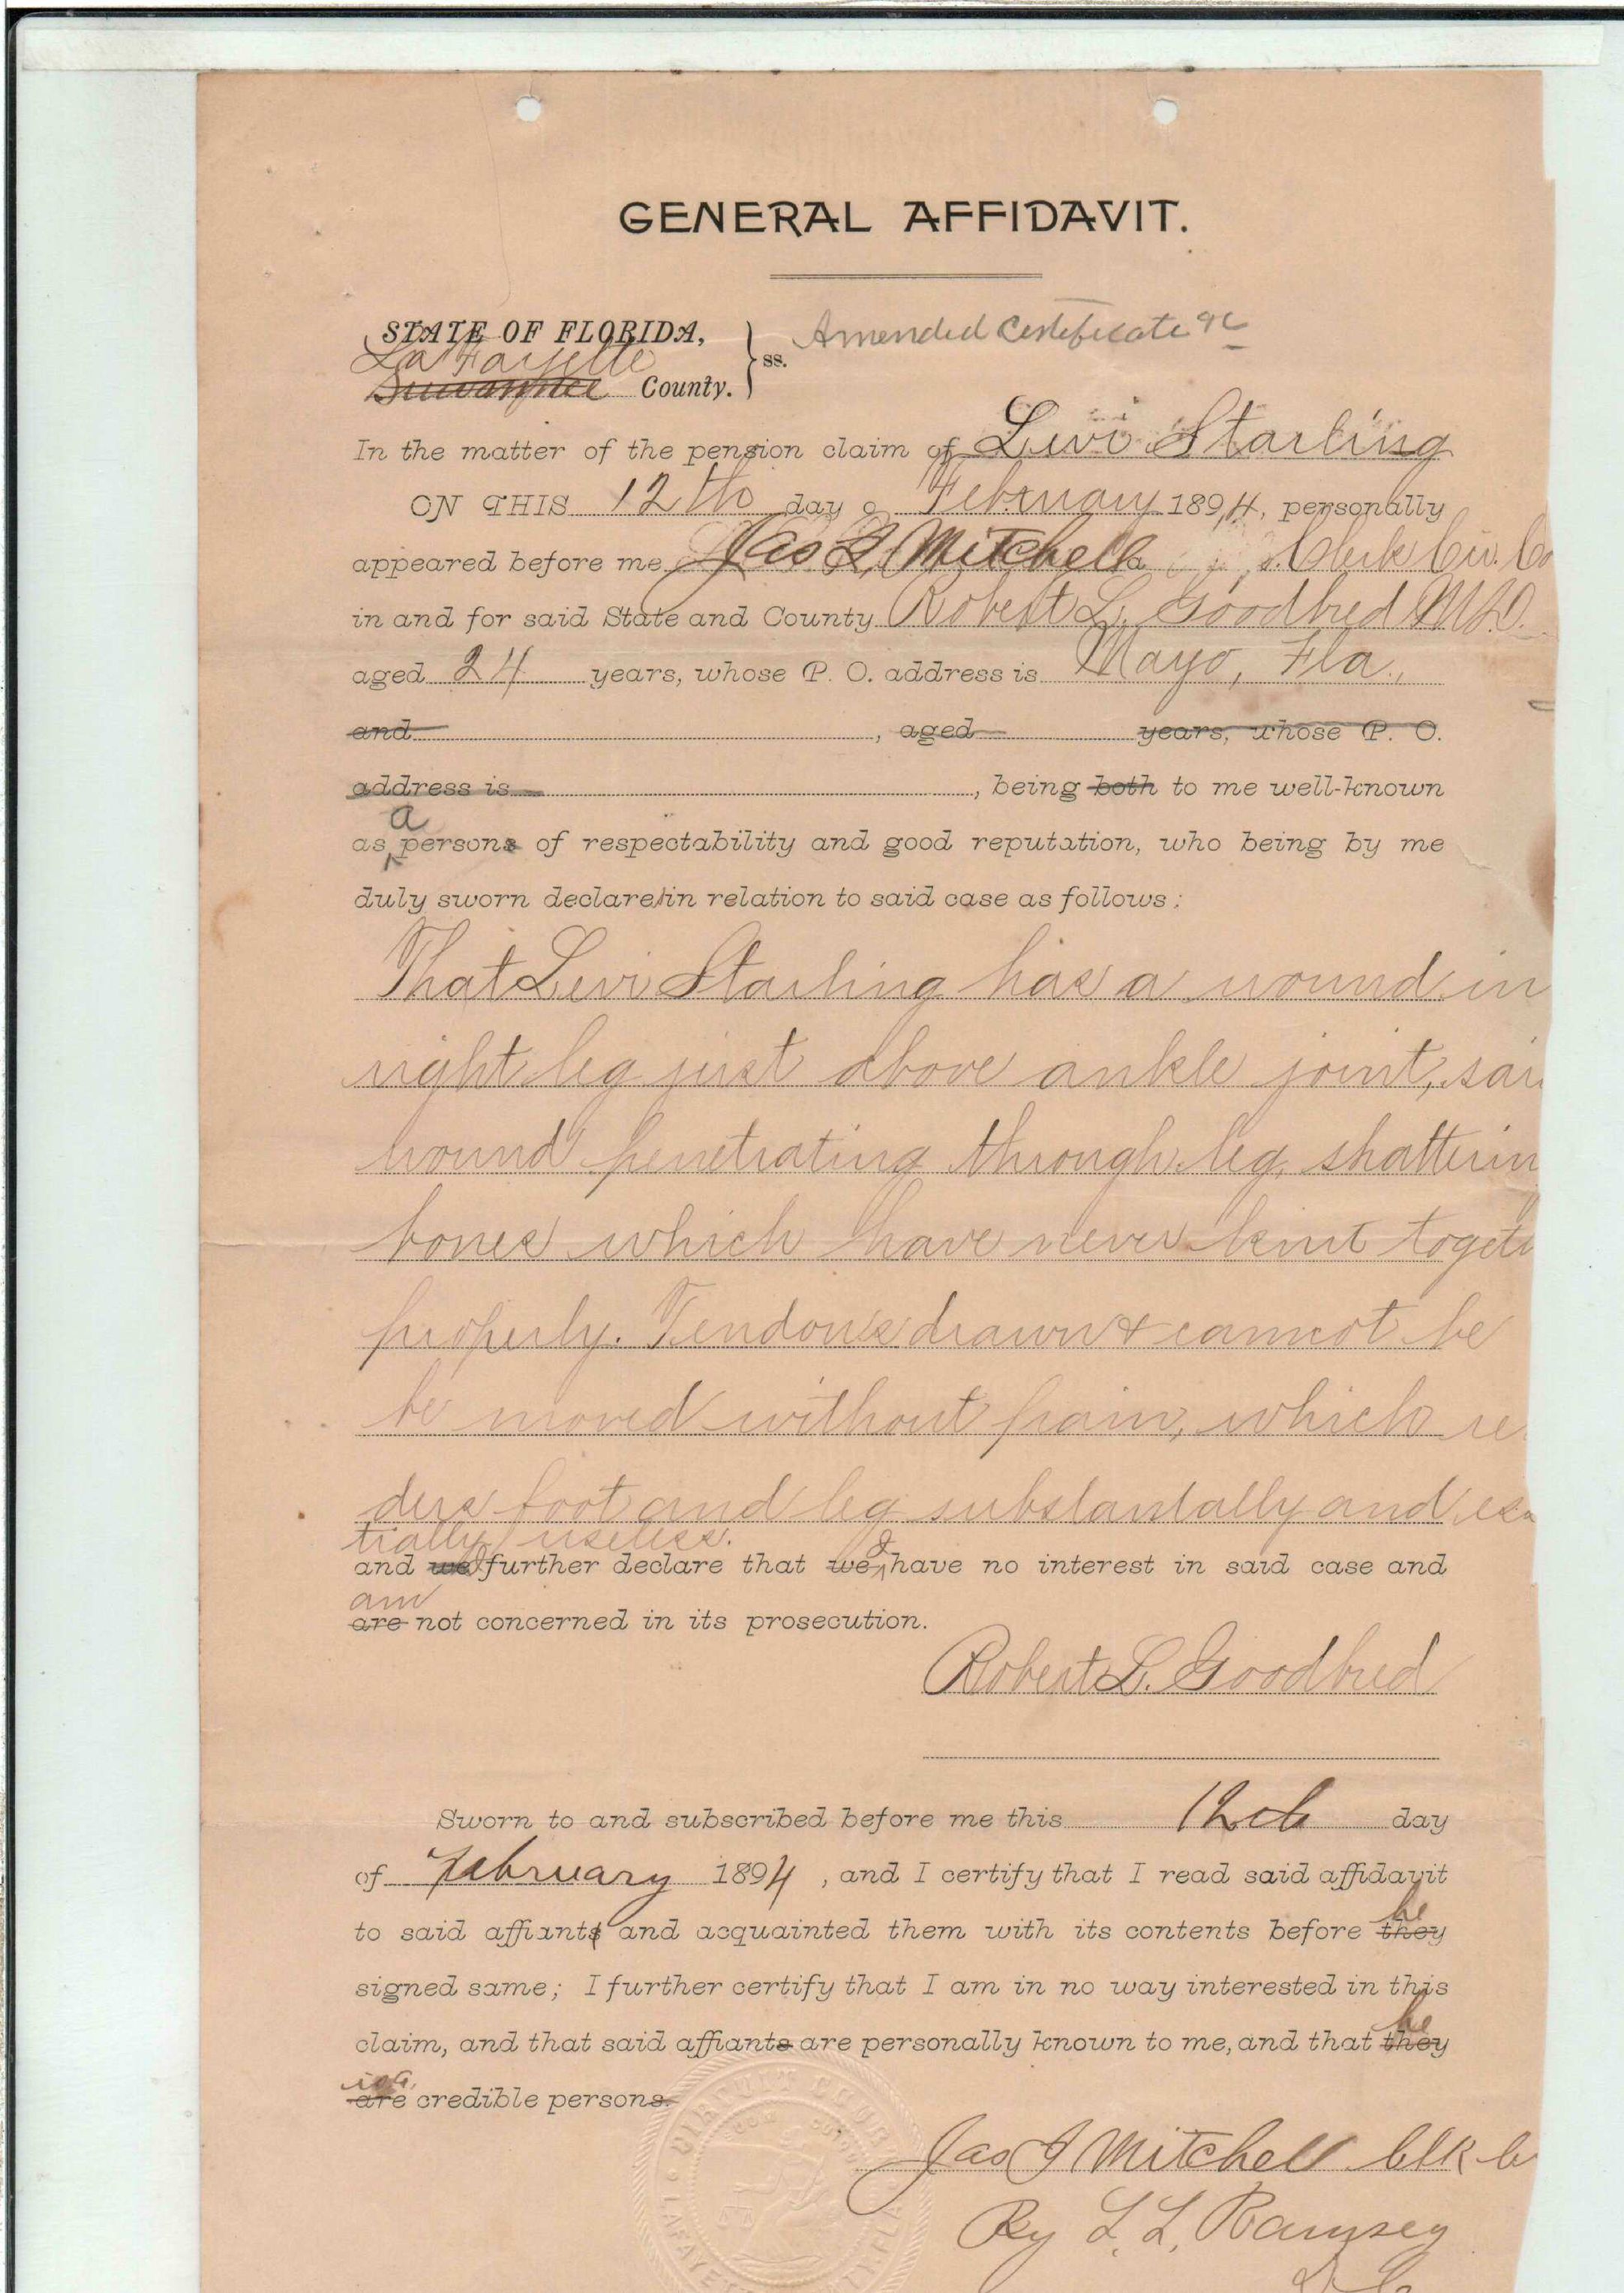 GENERAL AFFIDAVIT.
STATE OF FLORIDA,
Amended Certificate
La Fayette
Suwannee County.
ss.
In the matter of the pension claim of Levi Starling
ON THIS 12th day o February 1894, personally
appeared before me Jas I. Mitchell Clerk Cir. Co
in and for said State and County Robert L. Goodbred M.D.
aged 24 years, whose P. O. address is Mayo, Fla.,
and , aged years, whose P. O.
address is , being both to me well-known
a
as persons of respectability and good reputation, who being by me
duly sworn declare in relation to said case as follows:
That Levi Starling has a wound in
right leg just above ankle joint, sai
wound penetrating through leg, shatterin
bones which have never knit togeth
properly. Tendons drawn & cannot be
be moved without pain, which re
ders foot and leg substantally and es
tially useless.
and we I further declare that we I have no interest in said case and
am
are not concerned in its prosecution.
Robert L. Goodbred
Sworn to and subscribed before me this 12th day
of February 1894, and I certify that I read said affidavit
he
to said affiants and acquainted them with its contents before they
signed same; I further certify that I am in no way interested in this
he
claim, and that said affiants are personally known to me, and that they
is a
are credible persons.
Jas I Mitchell Clk C
By L. L. Ramsey
D C
CIRCUIT COURT
LAFAYETTE